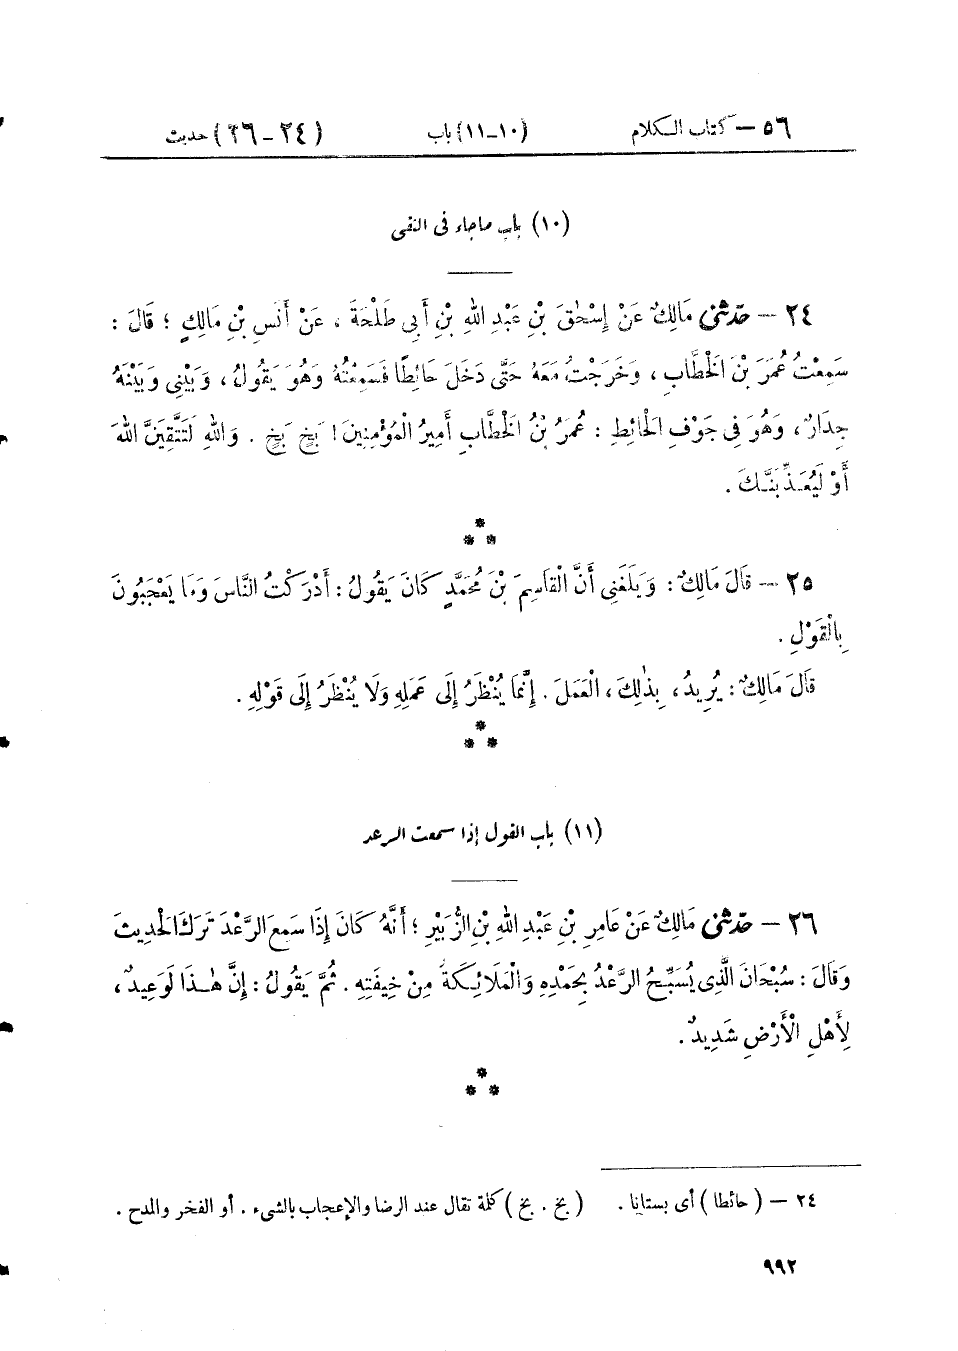 ٥٦ – كتاب الكلام (١٠-١١) باب (٢٤-٢٦) حديث
(١٠) باب ماجاء فى التقى
٢٤ – حَدَّثَنِى مَالِكٌ عَنْ إِسْحٰقَ بْنِ عَبْدِ اللهِ بْنِ أَبِى طَلْحَةَ ، عَنْ أَنَسِ بْنِ مَالِكٍ ؛ قَالَ :
سَمِعْتُ عُمَرَ بْنَ الْخَطَّابِ ، وَخَرَجْتُ مَعَهُ حَتَّى دَخَلَ حَائِطًا فَسَمِعْتُهُ وَهُوَ يَقُولُ ، وَبَيْنِى وَبَيْنَهُ
جِدَارٌ ، وَهُوَ فِى جَوْفِ الْحَائِطِ : عُمَرُ بْنُ الْخَطَّابِ أَمِيرُ الْمُؤْمِنِينَ ! بَخٍ بَخٍ . وَاللهِ لَتَتَّقِيَنَّ اللهَ
أَوْ لَيُعَذِّبَنَّكَ .
*
* *
٢٥ – قَالَ مَالِكٌ : وَبَلَغَنِى أَنَّ الْقَاسِمَ بْنَ مُحَمَّدٍ كَانَ يَقُولُ : أَدْرَكْتُ النَّاسَ وَمَا يَعْجَبُونَ
بِالْقَوْلِ .
قَالَ مَالِكٌ : يُرِيدُ ، بِذٰلِكَ ، الْعَمَلَ . إِنَّمَا يُنْظَرُ إِلَى عَمَلِهِ وَلَا يُنْظَرُ إِلَى قَوْلِهِ .
*
* *
(١١) باب القول إذا سمعت الرعد
٢٦ – حَدَّثَنِى مَالِكٌ عَنْ عَامِرِ بْنِ عَبْدِ اللهِ بْنِ الزُّبَيْرِ ؛ أَنَّهُ كَانَ إِذَا سَمِعَ الرَّعْدَ تَرَكَ الْحَدِيثَ
وَقَالَ : سُبْحَانَ الَّذِى يُسَبِّحُ الرَّعْدُ بِحَمْدِهِ وَالْمَلَائِكَةُ مِنْ خِيفَتِهِ . ثُمَّ يَقُولُ : إِنَّ هٰذَا لَوَعِيدٌ ،
لِأَهْلِ الْأَرْضِ شَدِيدٌ .
*
* *
٢٤ – (حائطا) أى بستانا . (بخ . بخ) كلمة تقال عند الرضا والإعجاب بالشىء . أو الفخر والمدح .
٩٩٢